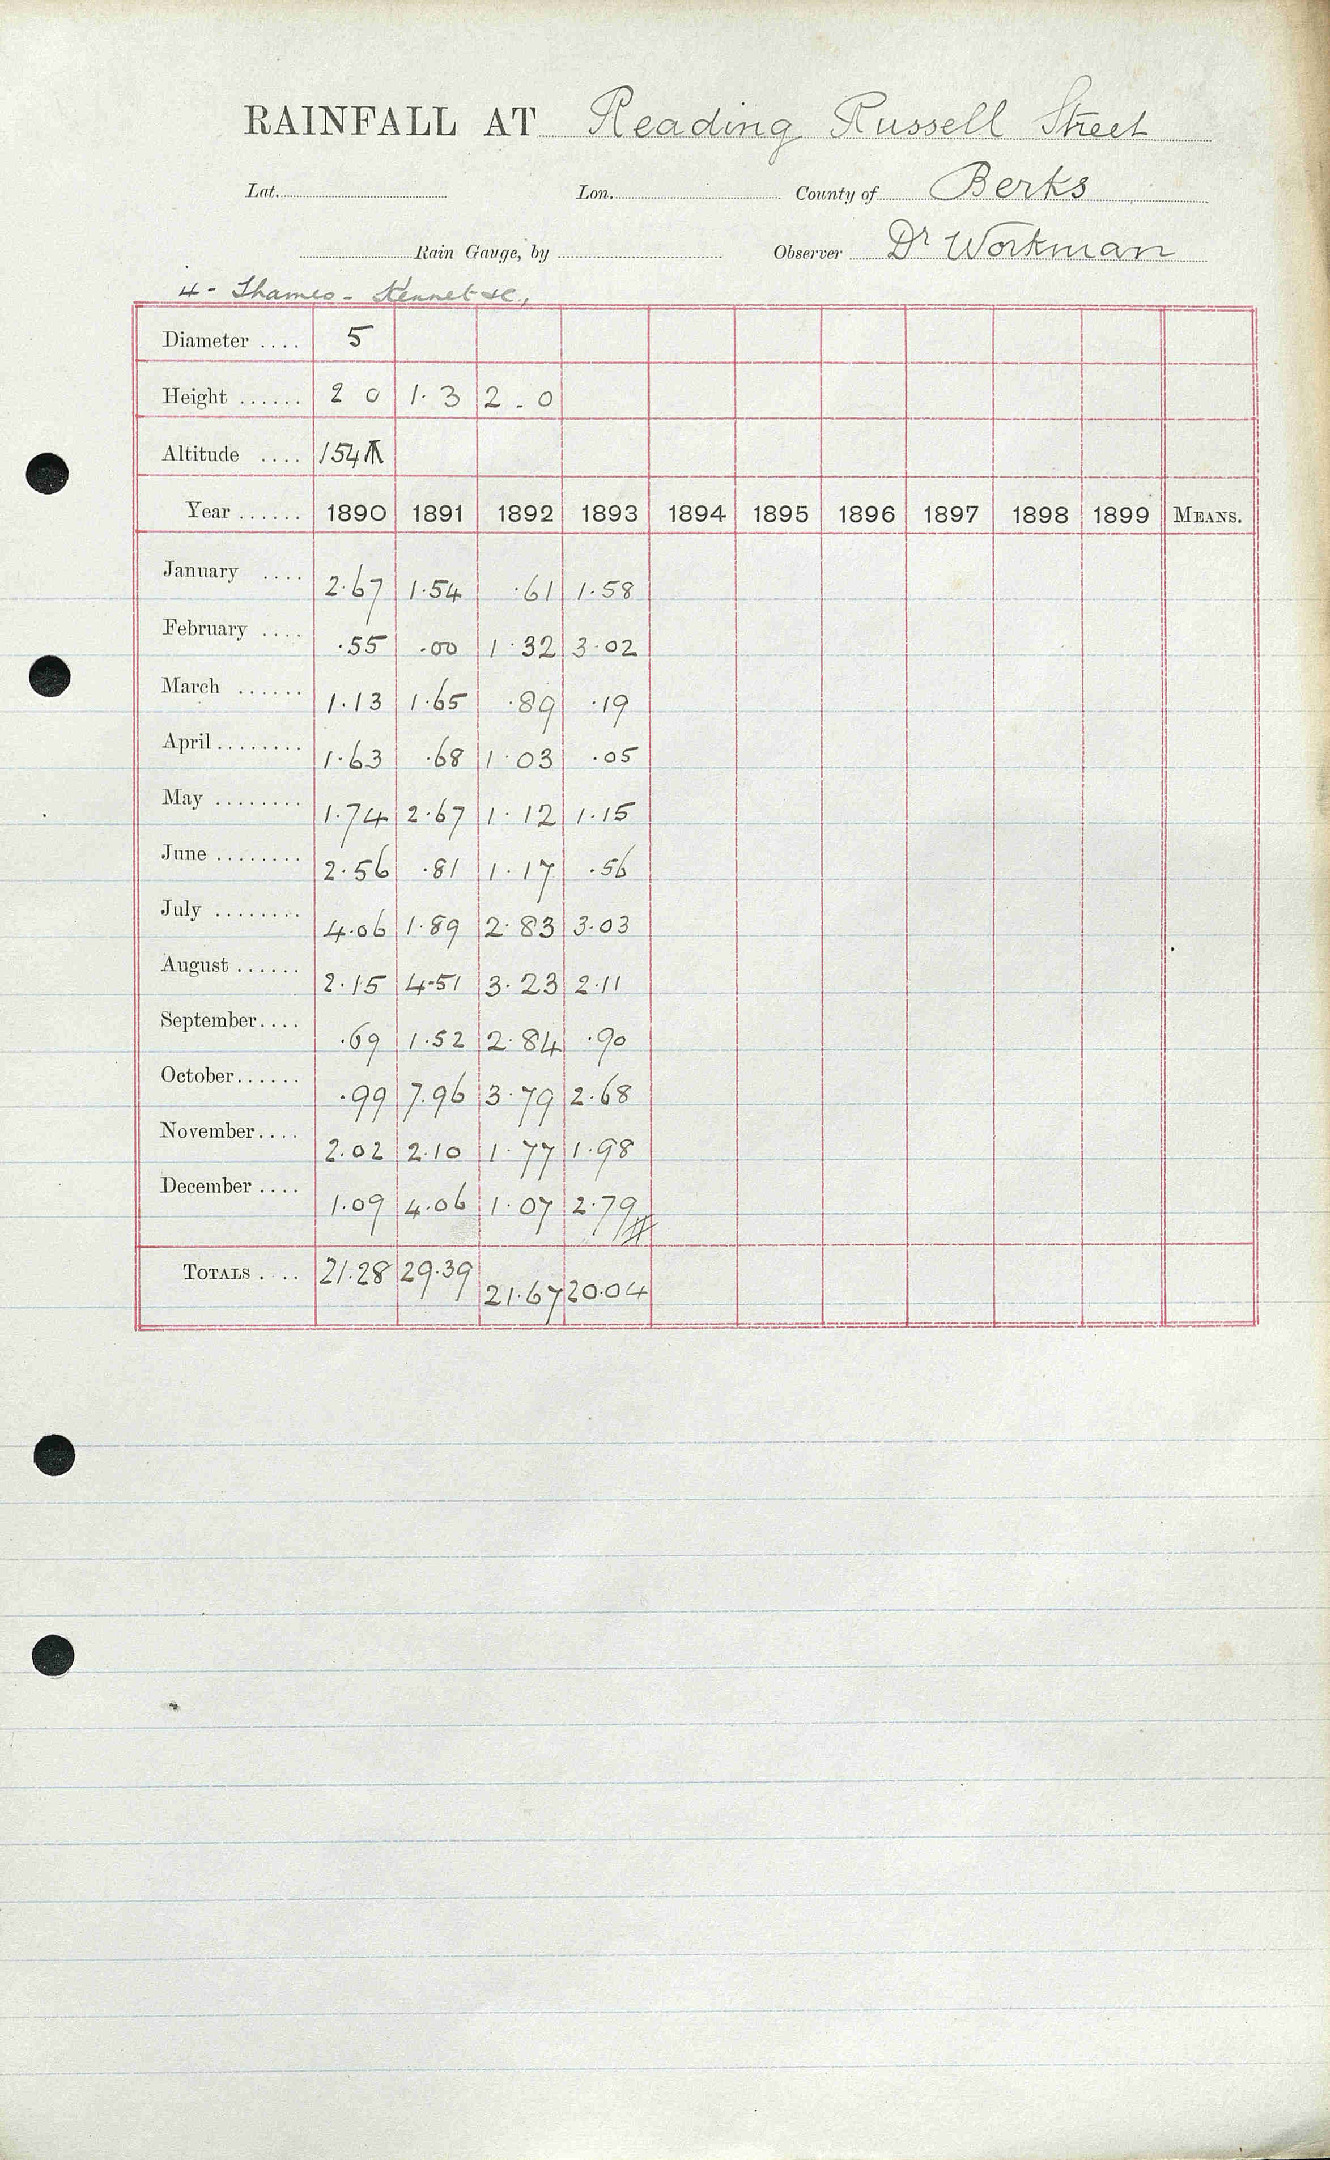 RAINFALL AT Reading Russell Street
Lat. Lon. County of Berks
Rain Gauge, by Observer Dr Workman
4 - Thames - Kennet &c,
Diameter .... 5
Height ...... 2 0 1.3 2.0
Altitude .... 154
Year ...... 1890 1891 1892 1893 1894 1895 1896 1897 1898 1899 MEANS.
January .... 2.67 1.54 .61 1.58
February .... .55 .00 1.32 3.02
March ...... 1.13 1.65 .89 .19
April ........ 1.63 .68 1.03 .05
May ........ 1.74 2.67 1.12 1.15
June ........ 2.56 .81 1.17 .56
July ........ 4.06 1.89 2.83 3.03
August ...... 2.15 4.51 3.23 2.11
September .... .69 1.52 2.84 .90
October ...... .99 7.96 3.79 2.68
November .... 2.02 2.10 1.77 1.98
December .... 1.09 4.06 1.07 2.79
TOTALS .... 21.28 29.39 21.67 20.04